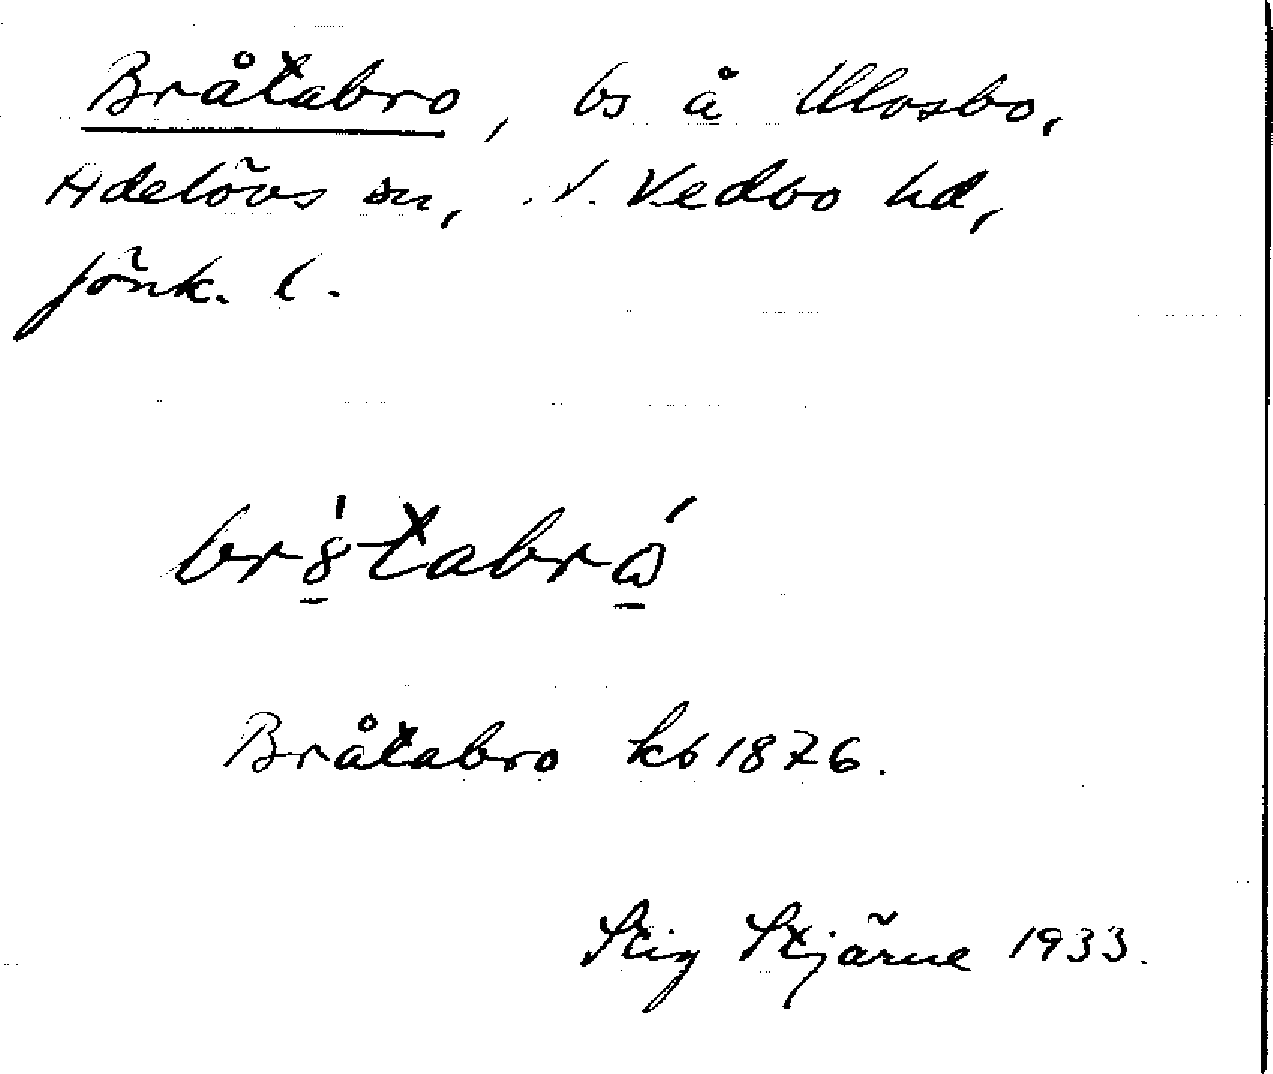 Bråtabro, bs å Ulvsbo,
Adelövs sn, N. Vedbo hd,
Jönk. l.
Bråtabro kb 1876.
Stig Stjärne 1933.